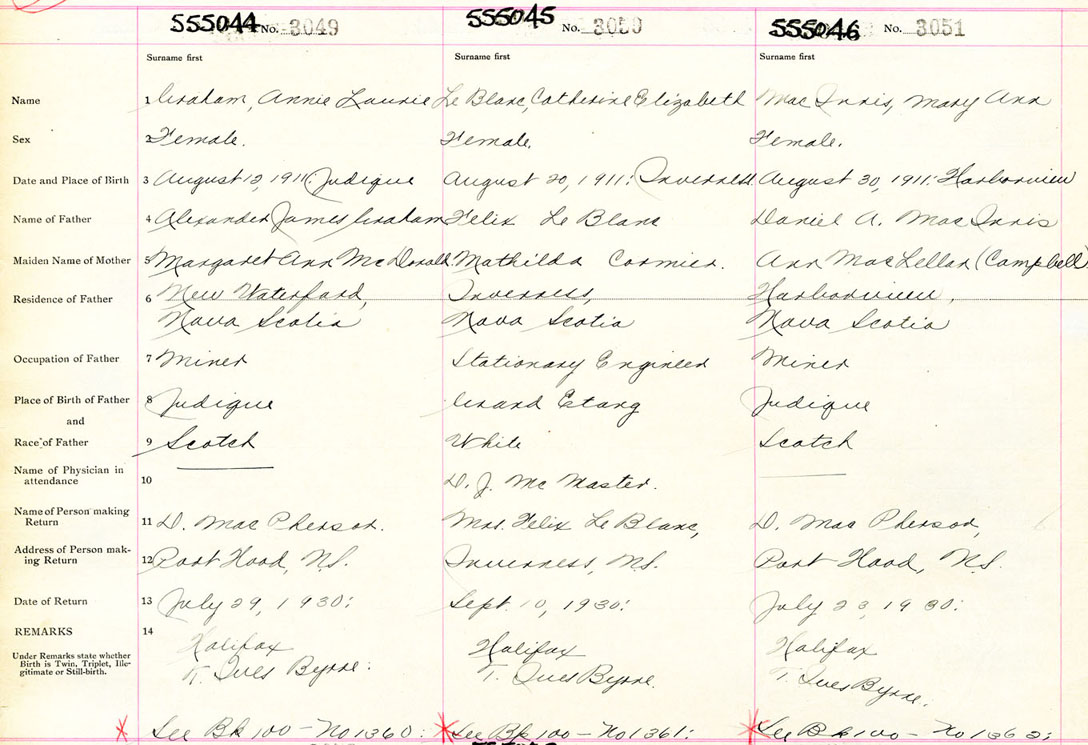 555044 No. 3049 555045 No. 3050 555046 No. 3051
Surname first Surname first Surname first
Name 1 Graham, Annie Laurie Le Blanc, Catherine Elizabeth Mac Innis, Mary Ann
Sex 2 Female. Female. Female.
Date and Place of Birth 3 August 12, 1911: Judique August 20, 1911: Inverness August 30, 1911: Harborview
Name of Father 4 Alexander James Graham Felix Le Blanc Daniel A. Mac Innis
Maiden Name of Mother 5 Margaret Ann Mc Donald. Mathilda Cormier. Ann MacLellan (Campbell)
Residence of Father 6 New Waterford, Inverness, Harborview,
Nova Scotia Nova Scotia Nova Scotia
Occupation of Father 7 Miner Stationary Engineer Miner
Place of Birth of Father 8 Judique Grand Etang Judique
and
Race of Father 9 Scotch White Scotch
Name of Physician in
attendance 10 D. J. Mc Master.
Name of Person making
Return 11 D. Mac Pherson. Mrs. Felix Le Blanc, D. Mac Pherson,
Address of Person mak-
ing Return 12 Port Hood, N.S. Inverness, N.S. Port Hood, N.S.
Date of Return 13 July 29, 1930: Sept. 10, 1930: July 23, 1930:
REMARKS 14
Under Remarks state whether
Birth is Twin, Triplet, Ille-
gitimate or Still-birth.
Halifax Halifax Halifax
T. Ives Byrne. T. Ives Byrne. T. Ives Byrne.
See Bk 100 - No 1360: See Bk 100 - No 1361: See Bk 100 - No